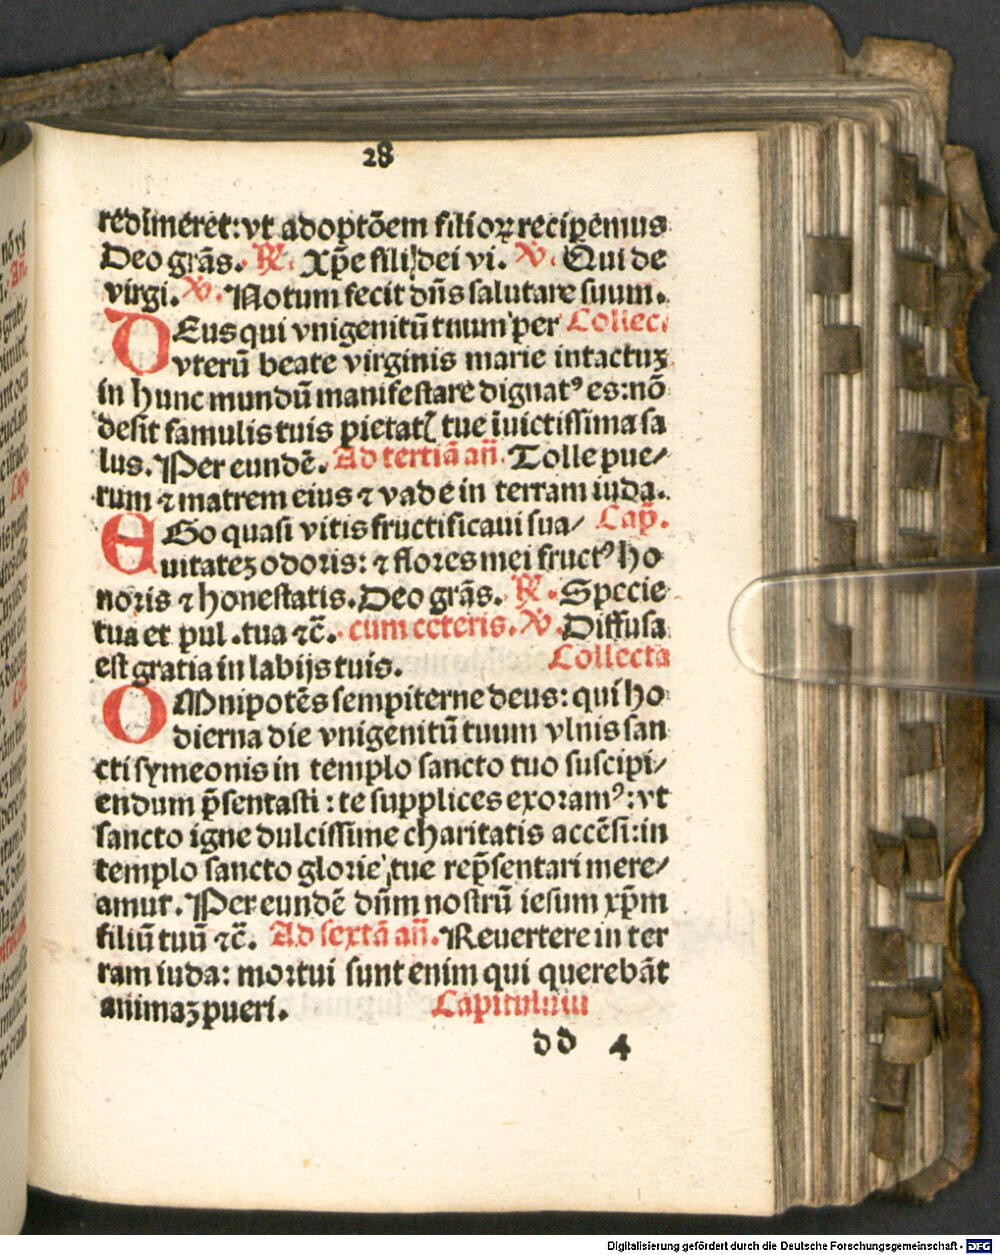 28
redimeret: vt adoptōem filioꝝ recipemus
Deo grās. ℟. Xp̄e fili dei vi. ℣. Qui de
virgi. ℣. Notum fecit dn̄s salutare suum.
DEus qui vnigenitū tuum per Collec.
vterū beate virginis marie intactuꝫ
in hunc mundū manifestare dignatꝰ es: nō
desit famulis tuis pietatꝭ tue īuictissima sa
lus. Per eundē. Ad tertiā an̄. Tolle pue/
rum ⁊ matrem eius ⁊ vade in terram iuda.
EGo quasi vitis fructificaui sua/ Cap̄.
uitateꝫ odoris: ⁊ flores mei fructꝰ ho
noris ⁊ honestatis. Deo grās. ℟. Specie
tua et pul. tua ⁊c̄. cum ceteris. ℣. Diffusa
est gratia in labijs tuis. Collecta
OMnipotēs sempiterne deus: qui ho
dierna die vnigenitū tuum vlnis san
cti symeonis in templo sancto tuo suscipi/
endum p̄sentasti: te supplices exoramꝰ: vt
sancto igne dulcissime charitatis accēsi: in
templo sancto glorie tue rep̄sentari mere/
amur. Per eundē dn̄m nostrū iesum xp̄m
filiū tuū ⁊c̄. Ad sextā an̄. Reuertere in ter
ram iuda: mortui sunt enim qui querebāt
animaꝫ pueri. Capitulum
dd 4
Digitalisierung gefördert durch die Deutsche Forschungsgemeinschaft - DFG